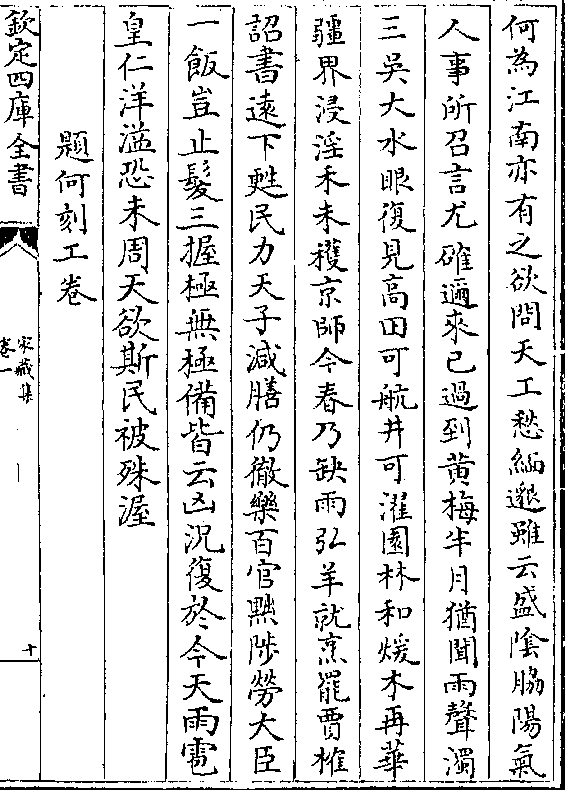 何為江南亦有之欲問天工愁緬邈雖云盛陰脇陽氣
人事所召言尤確邇來已過到黄梅半月猶聞雨聲濁
三吳大水眼復見高田可航井可濯園林和煖木再華
疆界浸淫禾未穫京師今春乃缺雨弘羊就烹罷賈榷
詔書遠下甦民力天子減膳仍徹樂百官黙陟勞大臣
一飯豈止髮三握極無極備皆云凶況復於今天雨雹
皇仁洋溢恐未周天欲斯民被殊渥
題何刻工卷
欽定四庫全書
家藏集
卷一
十